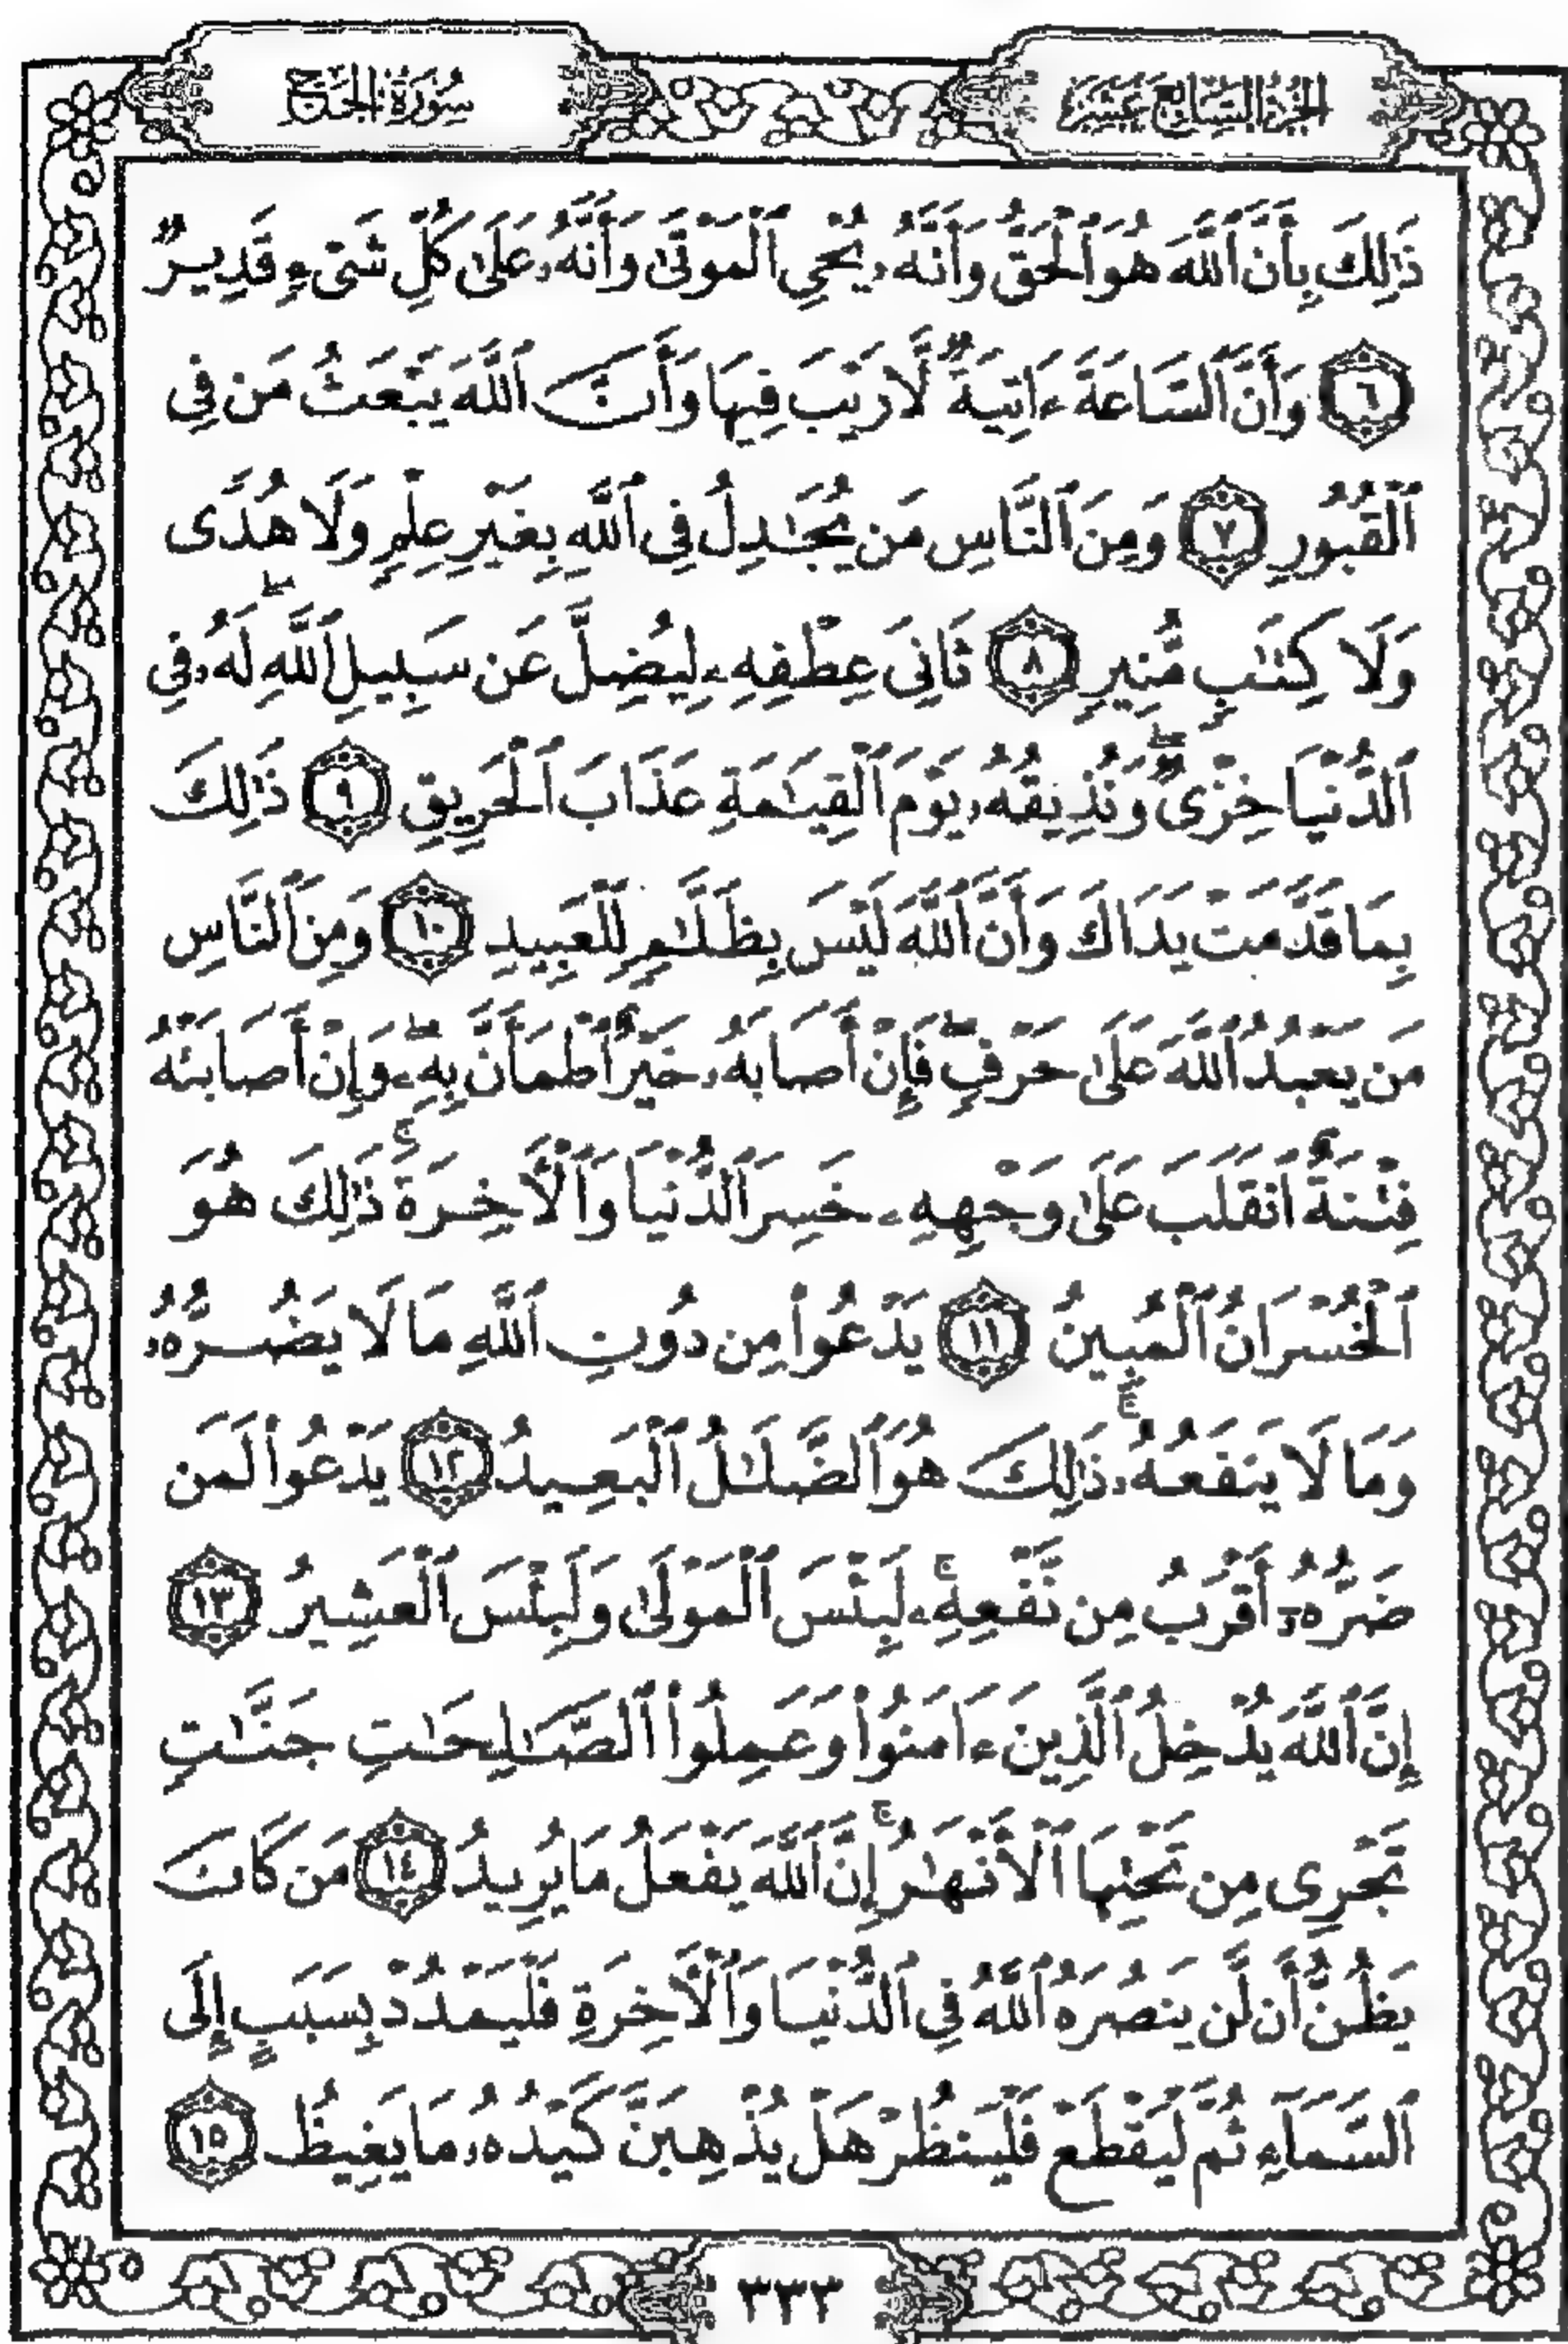 الجزء السابع عشر
سورة الحج
ذَٰلِكَ بِأَنَّ ٱللَّهَ هُوَ ٱلْحَقُّ وَأَنَّهُۥ يُحْىِ ٱلْمَوْتَىٰ وَأَنَّهُۥ عَلَىٰ كُلِّ شَىْءٍ قَدِيرٌ
٦ وَأَنَّ ٱلسَّاعَةَ ءَاتِيَةٌ لَّا رَيْبَ فِيهَا وَأَنَّ ٱللَّهَ يَبْعَثُ مَن فِى
ٱلْقُبُورِ ٧ وَمِنَ ٱلنَّاسِ مَن يُجَٰدِلُ فِى ٱللَّهِ بِغَيْرِ عِلْمٍ وَلَا هُدًى
وَلَا كِتَٰبٍ مُّنِيرٍ ٨ ثَانِىَ عِطْفِهِۦ لِيُضِلَّ عَن سَبِيلِ ٱللَّهِ ۖ لَهُۥ فِى
ٱلدُّنْيَا خِزْىٌ ۖ وَنُذِيقُهُۥ يَوْمَ ٱلْقِيَٰمَةِ عَذَابَ ٱلْحَرِيقِ ٩ ذَٰلِكَ
بِمَا قَدَّمَتْ يَدَاكَ وَأَنَّ ٱللَّهَ لَيْسَ بِظَلَّٰمٍ لِّلْعَبِيدِ ١٠ وَمِنَ ٱلنَّاسِ
مَن يَعْبُدُ ٱللَّهَ عَلَىٰ حَرْفٍ ۖ فَإِنْ أَصَابَهُۥ خَيْرٌ ٱطْمَأَنَّ بِهِۦ ۖ وَإِنْ أَصَابَتْهُ
فِتْنَةٌ ٱنقَلَبَ عَلَىٰ وَجْهِهِۦ خَسِرَ ٱلدُّنْيَا وَٱلْأَخِرَةَ ۚ ذَٰلِكَ هُوَ
ٱلْخُسْرَانُ ٱلْمُبِينُ ١١ يَدْعُوا۟ مِن دُونِ ٱللَّهِ مَا لَا يَضُرُّهُۥ
وَمَا لَا يَنفَعُهُۥ ۚ ذَٰلِكَ هُوَ ٱلضَّلَٰلُ ٱلْبَعِيدُ ١٢ يَدْعُوا۟ لَمَن
ضَرُّهُۥٓ أَقْرَبُ مِن نَّفْعِهِۦ ۚ لَبِئْسَ ٱلْمَوْلَىٰ وَلَبِئْسَ ٱلْعَشِيرُ ١٣
إِنَّ ٱللَّهَ يُدْخِلُ ٱلَّذِينَ ءَامَنُوا۟ وَعَمِلُوا۟ ٱلصَّٰلِحَٰتِ جَنَّٰتٍ
تَجْرِى مِن تَحْتِهَا ٱلْأَنْهَٰرُ ۚ إِنَّ ٱللَّهَ يَفْعَلُ مَا يُرِيدُ ١٤ مَن كَانَ
يَظُنُّ أَن لَّن يَنصُرَهُ ٱللَّهُ فِى ٱلدُّنْيَا وَٱلْأَخِرَةِ فَلْيَمْدُدْ بِسَبَبٍ إِلَى
ٱلسَّمَآءِ ثُمَّ لْيَقْطَعْ فَلْيَنظُرْ هَلْ يُذْهِبَنَّ كَيْدُهُۥ مَا يَغِيظُ ١٥
٣٣٣